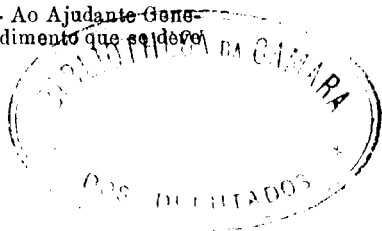 - Ao Ajudante Gene-
dimento que se deve
BIBLIOTHECA DA CAMARA
DOS DEPUTADOS